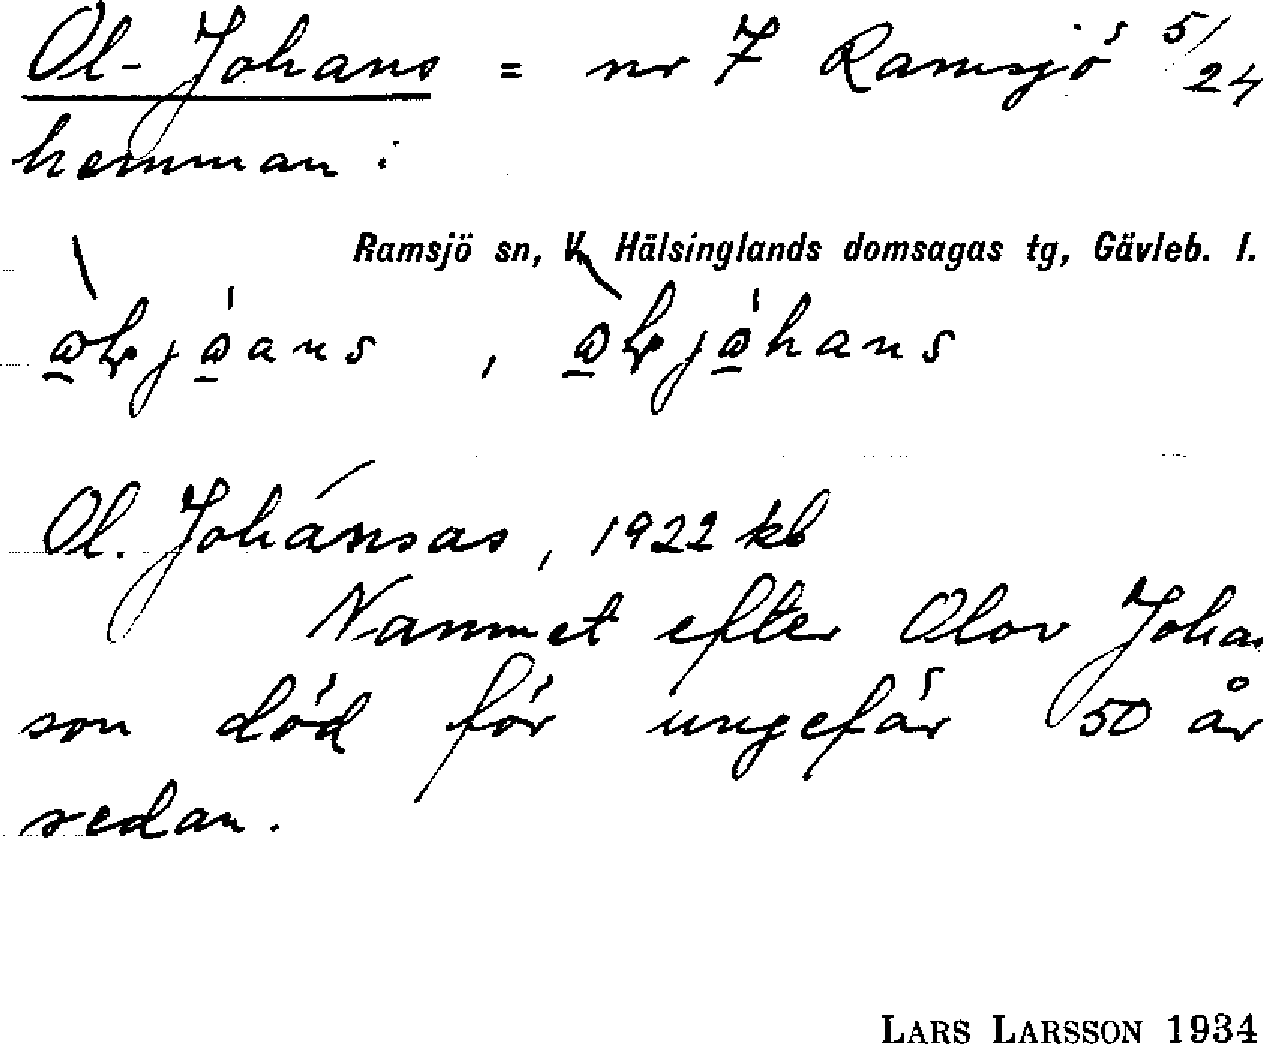 Ol-Johans = nr 7 Ramsjö 5/24
hemman i
Ramsjö sn, V. Hälsinglands domsagas tg, Gävleb. l.
Ol. Johánsas, 1922 kb
Namnet efter Olov Johan
son död för ungefär 50 år
sedan.
LARS LARSSON 1934